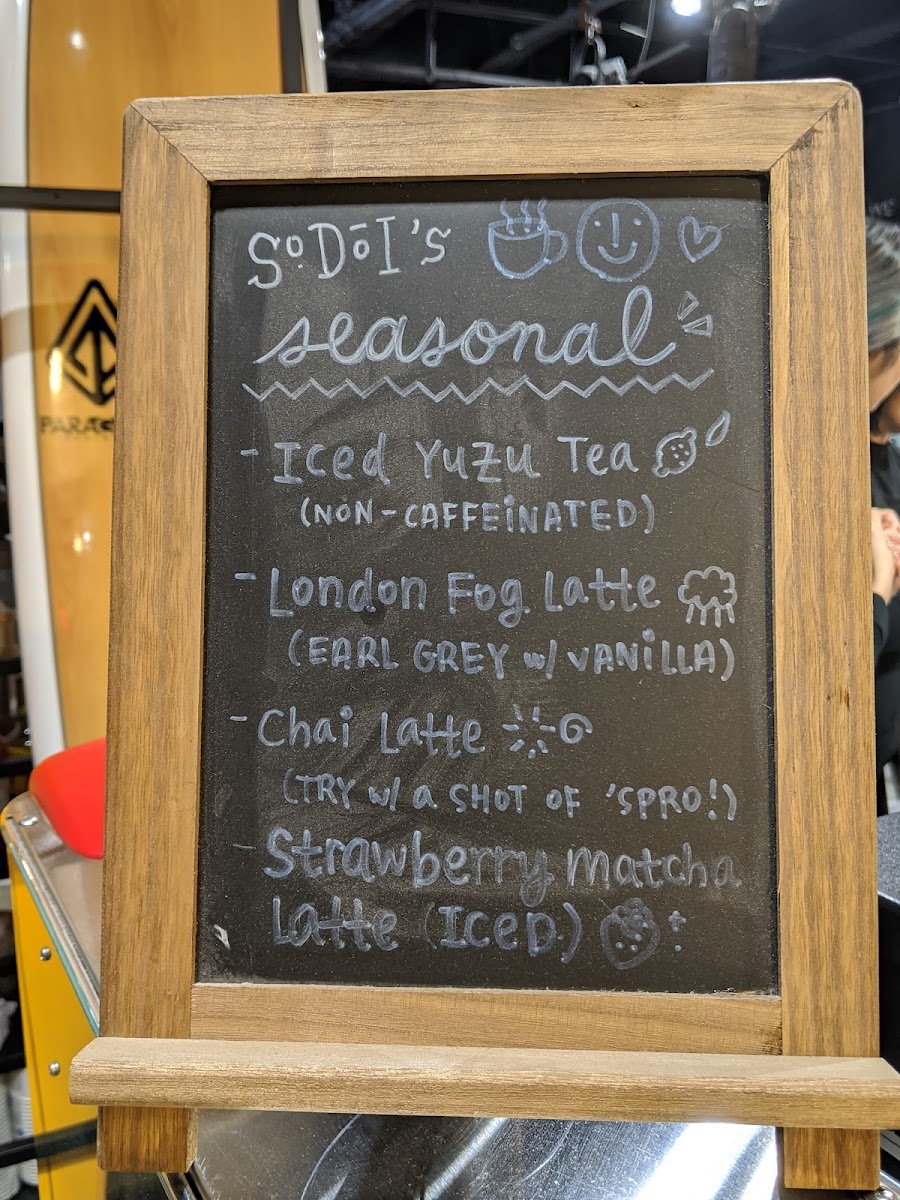 SoDōI's
seasonal
- Iced Yuzu Tea
(NON-CAFFEINATED)
- London Fog Latte
(EARL GREY w/ VANILLA)
- Chai Latte
(TRY w/ a SHOT OF 'SPRO!)
- Strawberry matcha
Latte (ICED)